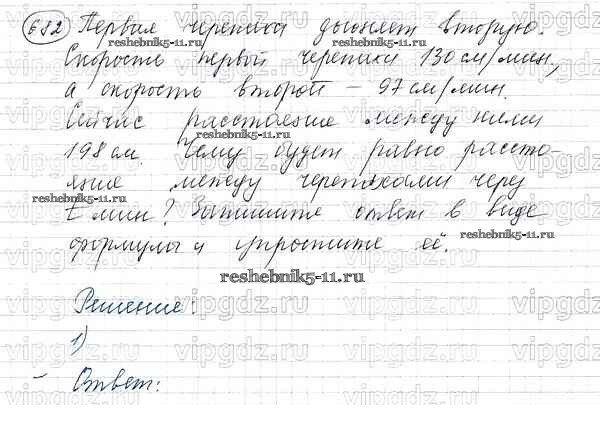 682 Первая черепаха догоняет вторую.
reshebnik5-11.ru
Скорость первой черепахи 130 см/мин,
а скорость второй – 97 см/мин.
Сейчас расстояние между ними
reshebnik5-11.ru
198 см. Чему будет равно рассто-
яние между черепахами через
reshebnik5-11.ru
t мин? Запишите ответ в виде
reshebnik5-11.ru
формулы и упростите её.
reshebnik5-11.ru
Решение:
1)
Ответ:
vipgdz.ru